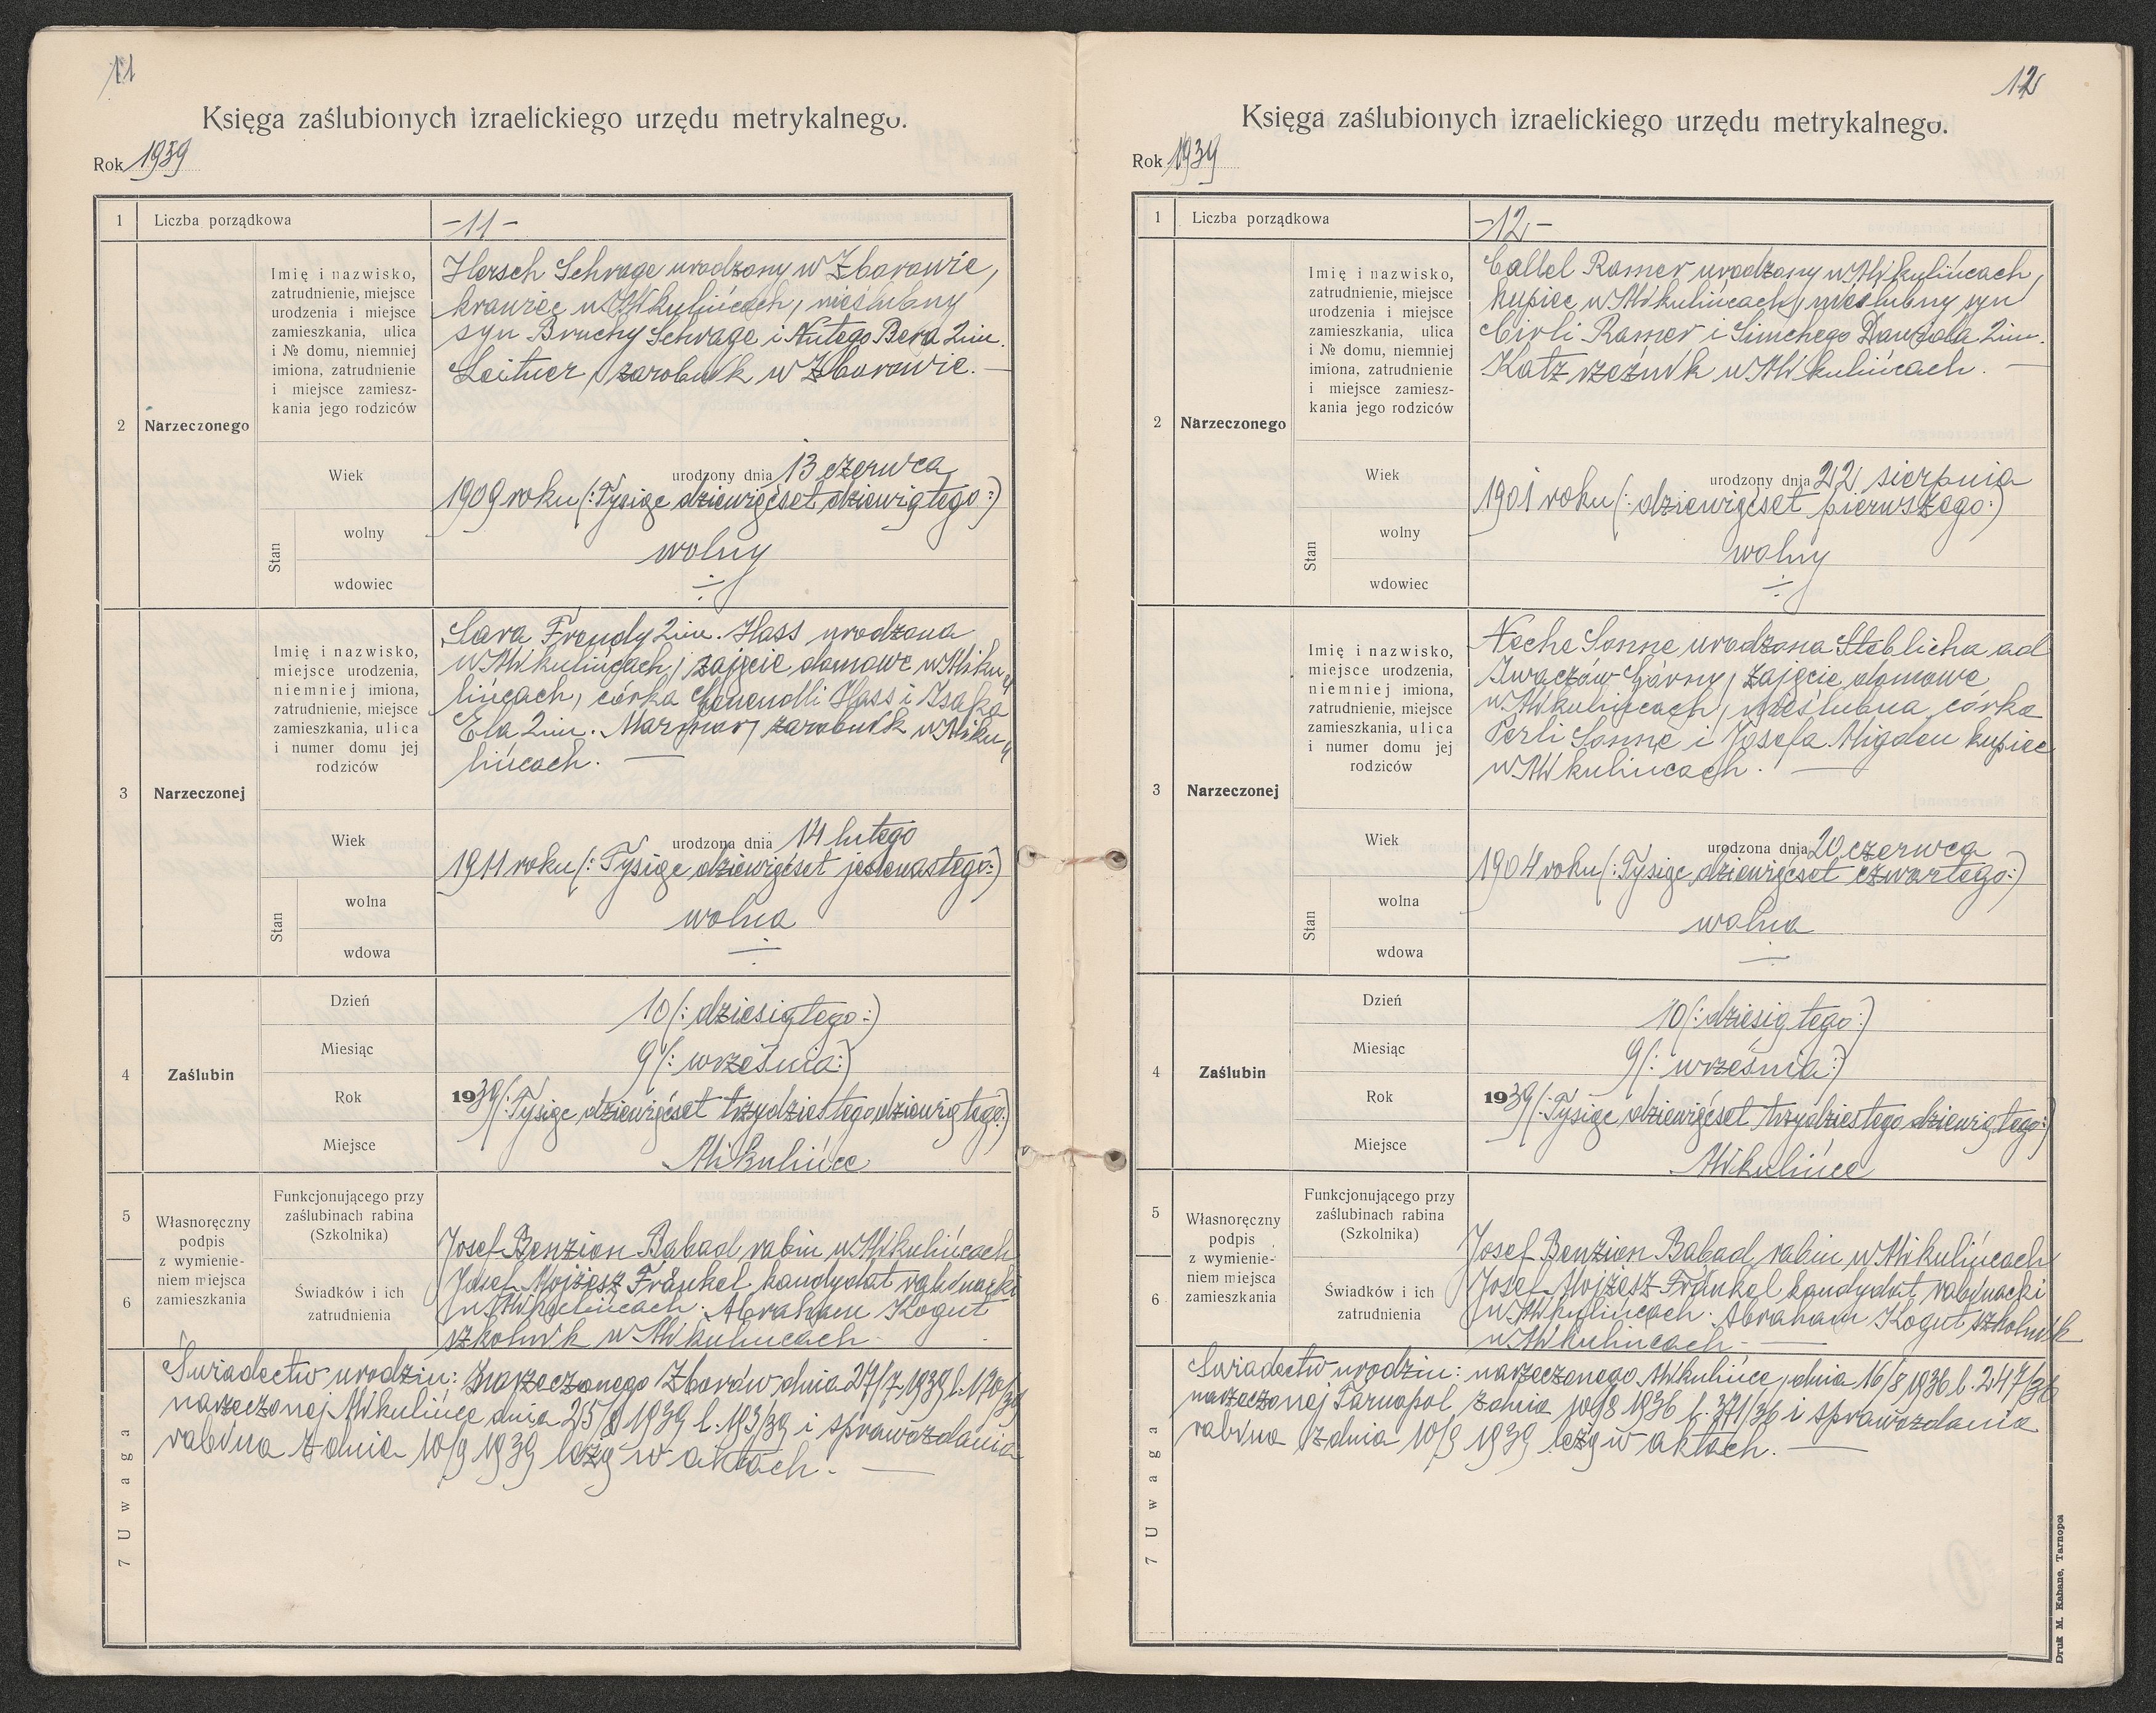 11
Księga zaślubionych izraelickiego urzędu metrykalnego.
Rok 1939
1 Liczba porządkowa -11-
2 Narzeczonego
Imię i nazwisko,
zatrudnienie, miejsce
urodzenia i miejsce
zamieszkania, ulica
i № domu, niemniej
imiona, zatrudnienie
i miejsce zamiesz-
kania jego rodziców
Hersch Schrage urodzony w Zborowie,
krawiec w Mikulińcach, nieślubny
syn Bruchy Schrage i Nutego Bera 2im.
Leitner, zarobnik w Zborowie. —
Wiek
urodzony dnia 13 czerwca
1909 roku (: Tysiąc dziewięćset dziewiątego :)
Stan
wolny
wolny
wdowiec
÷
3 Narzeczonej
Imię i nazwisko,
miejsce urodzenia,
niemniej imiona,
zatrudnienie, miejsce
zamieszkania, ulica
i numer domu jej
rodziców
Sara Freudy 2im. Hass urodzona
w Mikulińcach, zajęcie domowe w Miku„
lińcach, córka Hass i Isaka
Ela 2im. zarobnik w Miku„
lińcach. —
Wiek
urodzona dnia 14 lutego
1911 roku (: Tysiąc dziewięćset jedenastego :)
Stan
wolna
wolna
wdowa
÷
4 Zaślubin
Dzień 10 (: dziesiątego :)
Miesiąc 9 (: września :)
Rok 1939 (: Tysiąc dziewięćset trzydziestego dziewiątego :)
Miejsce Mikulińce
5
6
Własnoręczny
podpis
z wymienie-
niem miejsca
zamieszkania
Funkcjonującego przy
zaślubinach rabina
(Szkolnika)
Świadków i ich
zatrudnienia
Josef Benzion Babad rabin w Mikulińcach
Josef Mojżesz Fränkel kandydat rabinacki
w Mikulińcach. Abraham Kogut
szkolnik w Mikulińcach
7 Uwaga
Świadectw urodzin: narzeczonego Zborów dnia 27/7 1939 l. 170/39
narzeczonej Mikulińce dnia 25/8 1939 l. 193/39 i sprawozdania
rabina z dnia 10/9 1939 leżą w aktach. —
12
Księga zaślubionych izraelickiego urzędu metrykalnego.
Rok 1939
1 Liczba porządkowa -12-
2 Narzeczonego
Imię i nazwisko,
zatrudnienie, miejsce
urodzenia i miejsce
zamieszkania, ulica
i № domu, niemniej
imiona, zatrudnienie
i miejsce zamiesz-
kania jego rodziców
Callel Ramer urodzony w Mikulińcach,
kupiec w Mikulińcach, nieślubny syn
Cirli Ramer i Simchego Dawida 2im.
Katz rzeźnik w Mikulińcach. —
Wiek
urodzony dnia 22 sierpnia
1901 roku (: dziewięćset pierwszego :)
Stan
wolny
wolny
wdowiec
÷
3 Narzeczonej
Imię i nazwisko,
miejsce urodzenia,
niemniej imiona,
zatrudnienie, miejsce
zamieszkania, ulica
i numer domu jej
rodziców
Neche Sonne urodzona Steblicha ad
Iwaczów Górny, zajęcie domowe
w Mikulińcach, nieślubna córka
Perli Sonne i Josefa Migden kupiec
w Mikulińcach. —
Wiek
urodzona dnia 20 czerwca
1904 roku (: Tysiąc dziewięćset czwartego :)
Stan
wolna
wolna
wdowa
—
4 Zaślubin
Dzień 10 (: dziesiątego :)
Miesiąc 9 (: września :)
Rok 1939 (: Tysiąc dziewięćset trzydziestego dziewiątego :)
Miejsce Mikulińce
5
6
Własnoręczny
podpis
z wymienie-
niem miejsca
zamieszkania
Funkcjonującego przy
zaślubinach rabina
(Szkolnika)
Świadków i ich
zatrudnienia
Josef Benzion Babad, rabin w Mikulińcach
Josef Mojżesz Fränkel kandydat rabinacki
w Mikulińcach. Abraham Kogut szkolnik
w Mikulińcach —
7 Uwaga
Świadectw urodzin: narzeczonego Mikulińce, dnia 16/8 1936 l. 247/36
narzeczonej Tarnopol z dnia 10/8 1936 l. 371/36 i sprawozdania
rabina z dnia 10/9 1939 leżą w aktach. —
Druk M. Kahane, Tarnopol